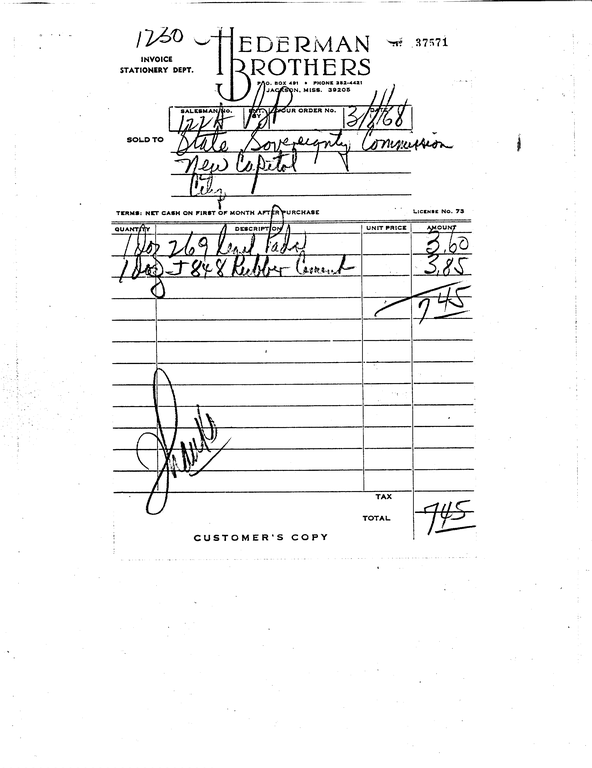 1230
HEDERMAN BROTHERS
Nº 37571
INVOICE
STATIONERY DEPT.
P.O. BOX 491 • PHONE 352-4421
JACKSON, MISS. 39205
SALESMAN NO. EXT. BY YOUR ORDER NO. DATE
122A 3/1/68
SOLD TO State Sovereignty Commission
New Capitol
City
TERMS: NET CASH ON FIRST OF MONTH AFTER PURCHASE LICENSE NO. 73
QUANTITY DESCRIPTION UNIT PRICE AMOUNT
1 Doz 269 Pads 3.60
1 Doz 848 Rubber Cement 3.85
7 45
Thanks
TAX
TOTAL 7 45
CUSTOMER'S COPY